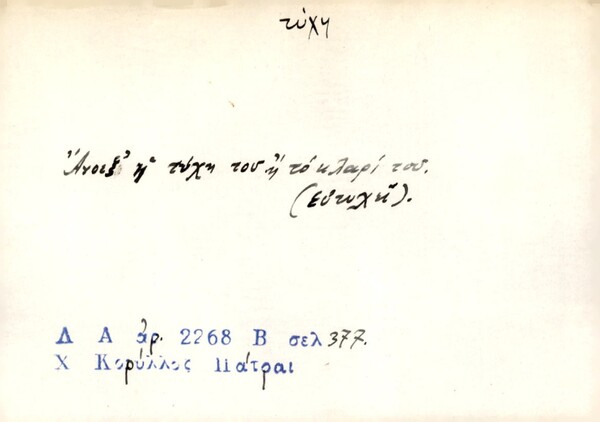 τύχη
Ἄνοιξ' ἡ τύχη του ἢ τὸ κλαρί του.
(εὐτυχεῖ).
Λ Α ἀρ. 2268 Β σελ 377.
Χ Κορύλλος Πάτραι